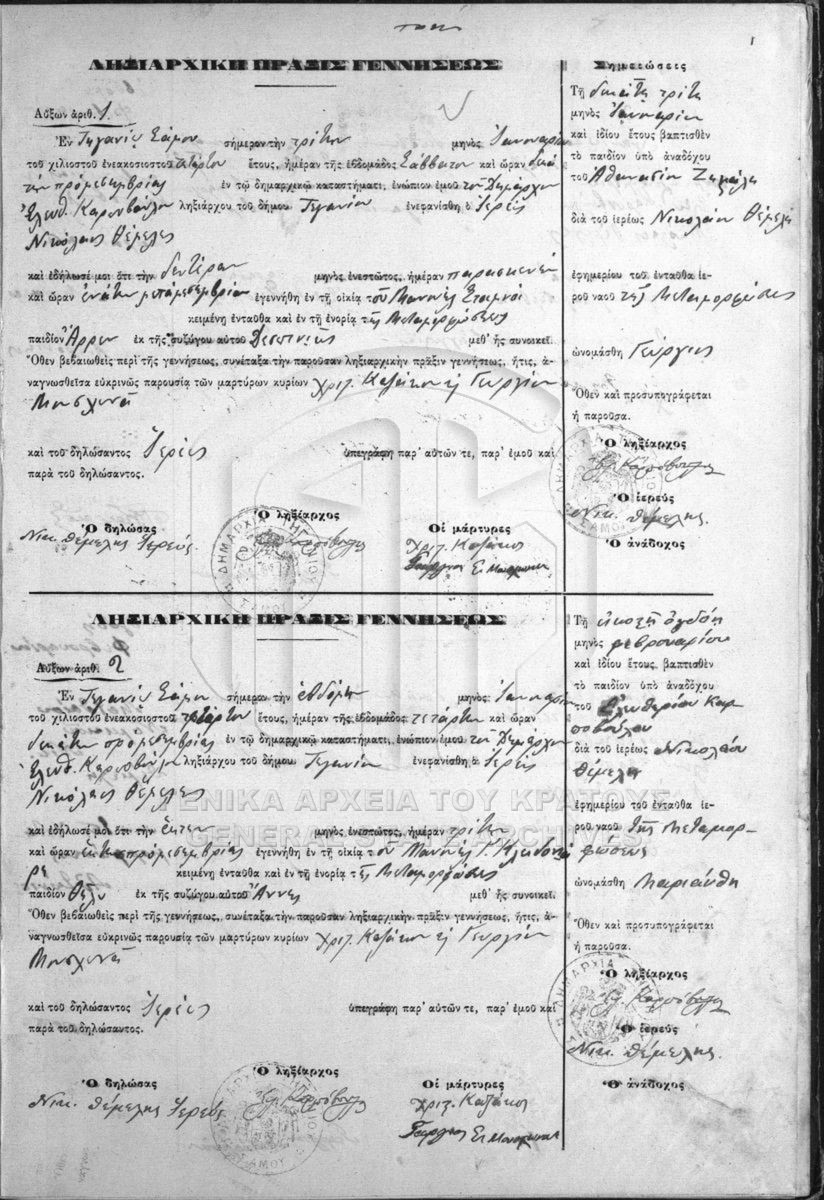 1
ΛΗΞΙΑΡΧΙΚΗ ΠΡΑΞΙΣ ΓΕΝΝΗΣΕΩΣ
Αὔξων ἀριθ. 1.
Ἐν Τηγανίῳ Σάμου σήμερον τὴν τρίτην μηνὸς Ἰανουαρίου
τοῦ χιλιοστοῦ ἐνεακοσιοστοῦ τετάρτου ἔτους, ἡμέραν τῆς ἑβδομάδος Σάββατον καὶ ὥραν δεκά
την πρὸ μεσημβρίας ἐν τῷ δημαρχικῷ καταστήματι, ἐνώπιον ἐμοῦ τοῦ Δημάρχου
Ἐλευθ. Καρποβούλου ληξιάρχου τοῦ δήμου Τηγανίου ἐνεφανίσθη ὁ Ἱερεὺς
Νικόλαος Θέμελης
καὶ ἐδήλωσέ μοι ὅτι τὴν δευτέραν μηνὸς ἐνεστῶτος, ἡμέραν παρασκευὴν
καὶ ὥραν ἐνάτην μ.μεσημβρίαν ἐγεννήθη ἐν τῇ οἰκίᾳ τοῦ Μανουὴλ Σταμνᾶ
κειμένῃ ἐνταῦθα καὶ ἐν τῇ ἐνορίᾳ τῆς Μεταμορφώσεως
παιδίον Ἄρρεν ἐκ τῆς συζύγου αὐτοῦ Δεσποίνης μεθ' ἧς συνοικεῖ.
Ὅθεν βεβαιωθεὶς περὶ τῆς γεννήσεως, συνέταξα τὴν παροῦσαν ληξιαρχικὴν πρᾶξιν γεννήσεως, ἥτις, ἀ-
ναγνωσθεῖσα εὐκρινῶς παρουσίᾳ τῶν μαρτύρων κυρίων Χριστ. Καζάκου & Γεωργίου
καὶ τοῦ δηλώσαντος Ἱερέως ὑπεγράφη παρ' αὐτῶν τε, παρ' ἐμοῦ καὶ
παρὰ τοῦ δηλώσαντος.
Ὁ δηλώσας Ὁ ληξίαρχος Οἱ μάρτυρες
Νικ. Θέμελης Ἱερεύς. Ἐλ. Καρπόβουλος Χριστ. Καζάκος
Σημειώσεις
Τῇ δεκάτῃ τρίτῃ
μηνὸς Ἰανουαρίου
καὶ ἰδίου ἔτους βαπτισθὲν
τὸ παιδίον ὑπὸ ἀναδόχου
τοῦ Ἀθανασίου
διὰ τοῦ ἱερέως Νικολάου Θέμελη
ἐφημερίου τοῦ ἐνταῦθα ἱε-
ροῦ ναοῦ τῆς Μεταμορφώσεως
ὠνομάσθη Γεώργιος
Ὅθεν καὶ προσυπογράφεται
ἡ παροῦσα.
Ὁ ληξίαρχος
Ἐλ. Καρπόβουλος
Ὁ ἱερεύς
Νικ. Θέμελης.
Ὁ ἀνάδοχος
ΛΗΞΙΑΡΧΙΚΗ ΠΡΑΞΙΣ ΓΕΝΝΗΣΕΩΣ
Αὔξων ἀριθ. 2
Ἐν Τηγανίῳ Σάμου σήμερον τὴν ἑβδόμην μηνὸς Ἰανουαρίου
τοῦ χιλιοστοῦ ἐνεακοσιοστοῦ τετάρτου ἔτους, ἡμέραν τῆς ἑβδομάδος τετάρτην καὶ ὥραν
δεκάτην προμεσημβρίας ἐν τῷ δημαρχικῷ καταστήματι, ἐνώπιον ἐμοῦ τοῦ Δημάρχου
Ἐλευθ. Καρποβούλου ληξιάρχου τοῦ δήμου Τηγανίου ἐνεφανίσθη ὁ Ἱερεὺς
Νικόλαος Θέμελης
καὶ ἐδήλωσέ μοι ὅτι τὴν ἕκτην μηνὸς ἐνεστῶτος, ἡμέραν τρίτην
καὶ ὥραν ἕκτην προμεσημβρίας ἐγεννήθη ἐν τῇ οἰκίᾳ τοῦ Μανουὴλ Γ. Κλειδονιά
ρη κειμένῃ ἐνταῦθα καὶ ἐν τῇ ἐνορίᾳ τῆς Μεταμορφώσεως
παιδίον Θῆλυ ἐκ τῆς συζύγου αὐτοῦ Ἄννης μεθ' ἧς συνοικεῖ.
Ὅθεν βεβαιωθεὶς περὶ τῆς γεννήσεως, συνέταξα τὴν παροῦσαν ληξιαρχικὴν πρᾶξιν γεννήσεως, ἥτις, ἀ-
ναγνωσθεῖσα εὐκρινῶς παρουσίᾳ τῶν μαρτύρων κυρίων Χριστ. Καζάκου & Γεωργίου
καὶ τοῦ δηλώσαντος Ἱερέως ὑπεγράφη παρ' αὐτῶν τε, παρ' ἐμοῦ καὶ
παρὰ τοῦ δηλώσαντος.
Ὁ δηλώσας Ὁ ληξίαρχος Οἱ μάρτυρες
Νικ. Θέμελης Ἱερεύς Ἐλ. Καρπόβουλος Χριστ. Καζάκος
Τῇ εἰκοστῇ ὀγδόῃ
μηνὸς φεβρουαρίου
καὶ ἰδίου ἔτους βαπτισθὲν
τὸ παιδίον ὑπὸ ἀναδόχου
τοῦ Ἐλευθερίου Καρ
ποβούλου
διὰ τοῦ ἱερέως Νικολάου
Θέμελη
ἐφημερίου τοῦ ἐνταῦθα ἱε-
ροῦ ναοῦ τῆς Μεταμορ-
φώσεως
ὠνομάσθη Μαριάνθη
Ὅθεν καὶ προσυπογράφεται
ἡ παροῦσα.
Ὁ ληξίαρχος
Ἐλ. Καρπόβουλος
Ὁ ἱερεύς
Νικ. Θέμελης.
Ὁ ἀνάδοχος
ΓΕΝΙΚΑ ΑΡΧΕΙΑ ΤΟΥ ΚΡΑΤΟΥΣ
GENERAL STATE ARCHIVES